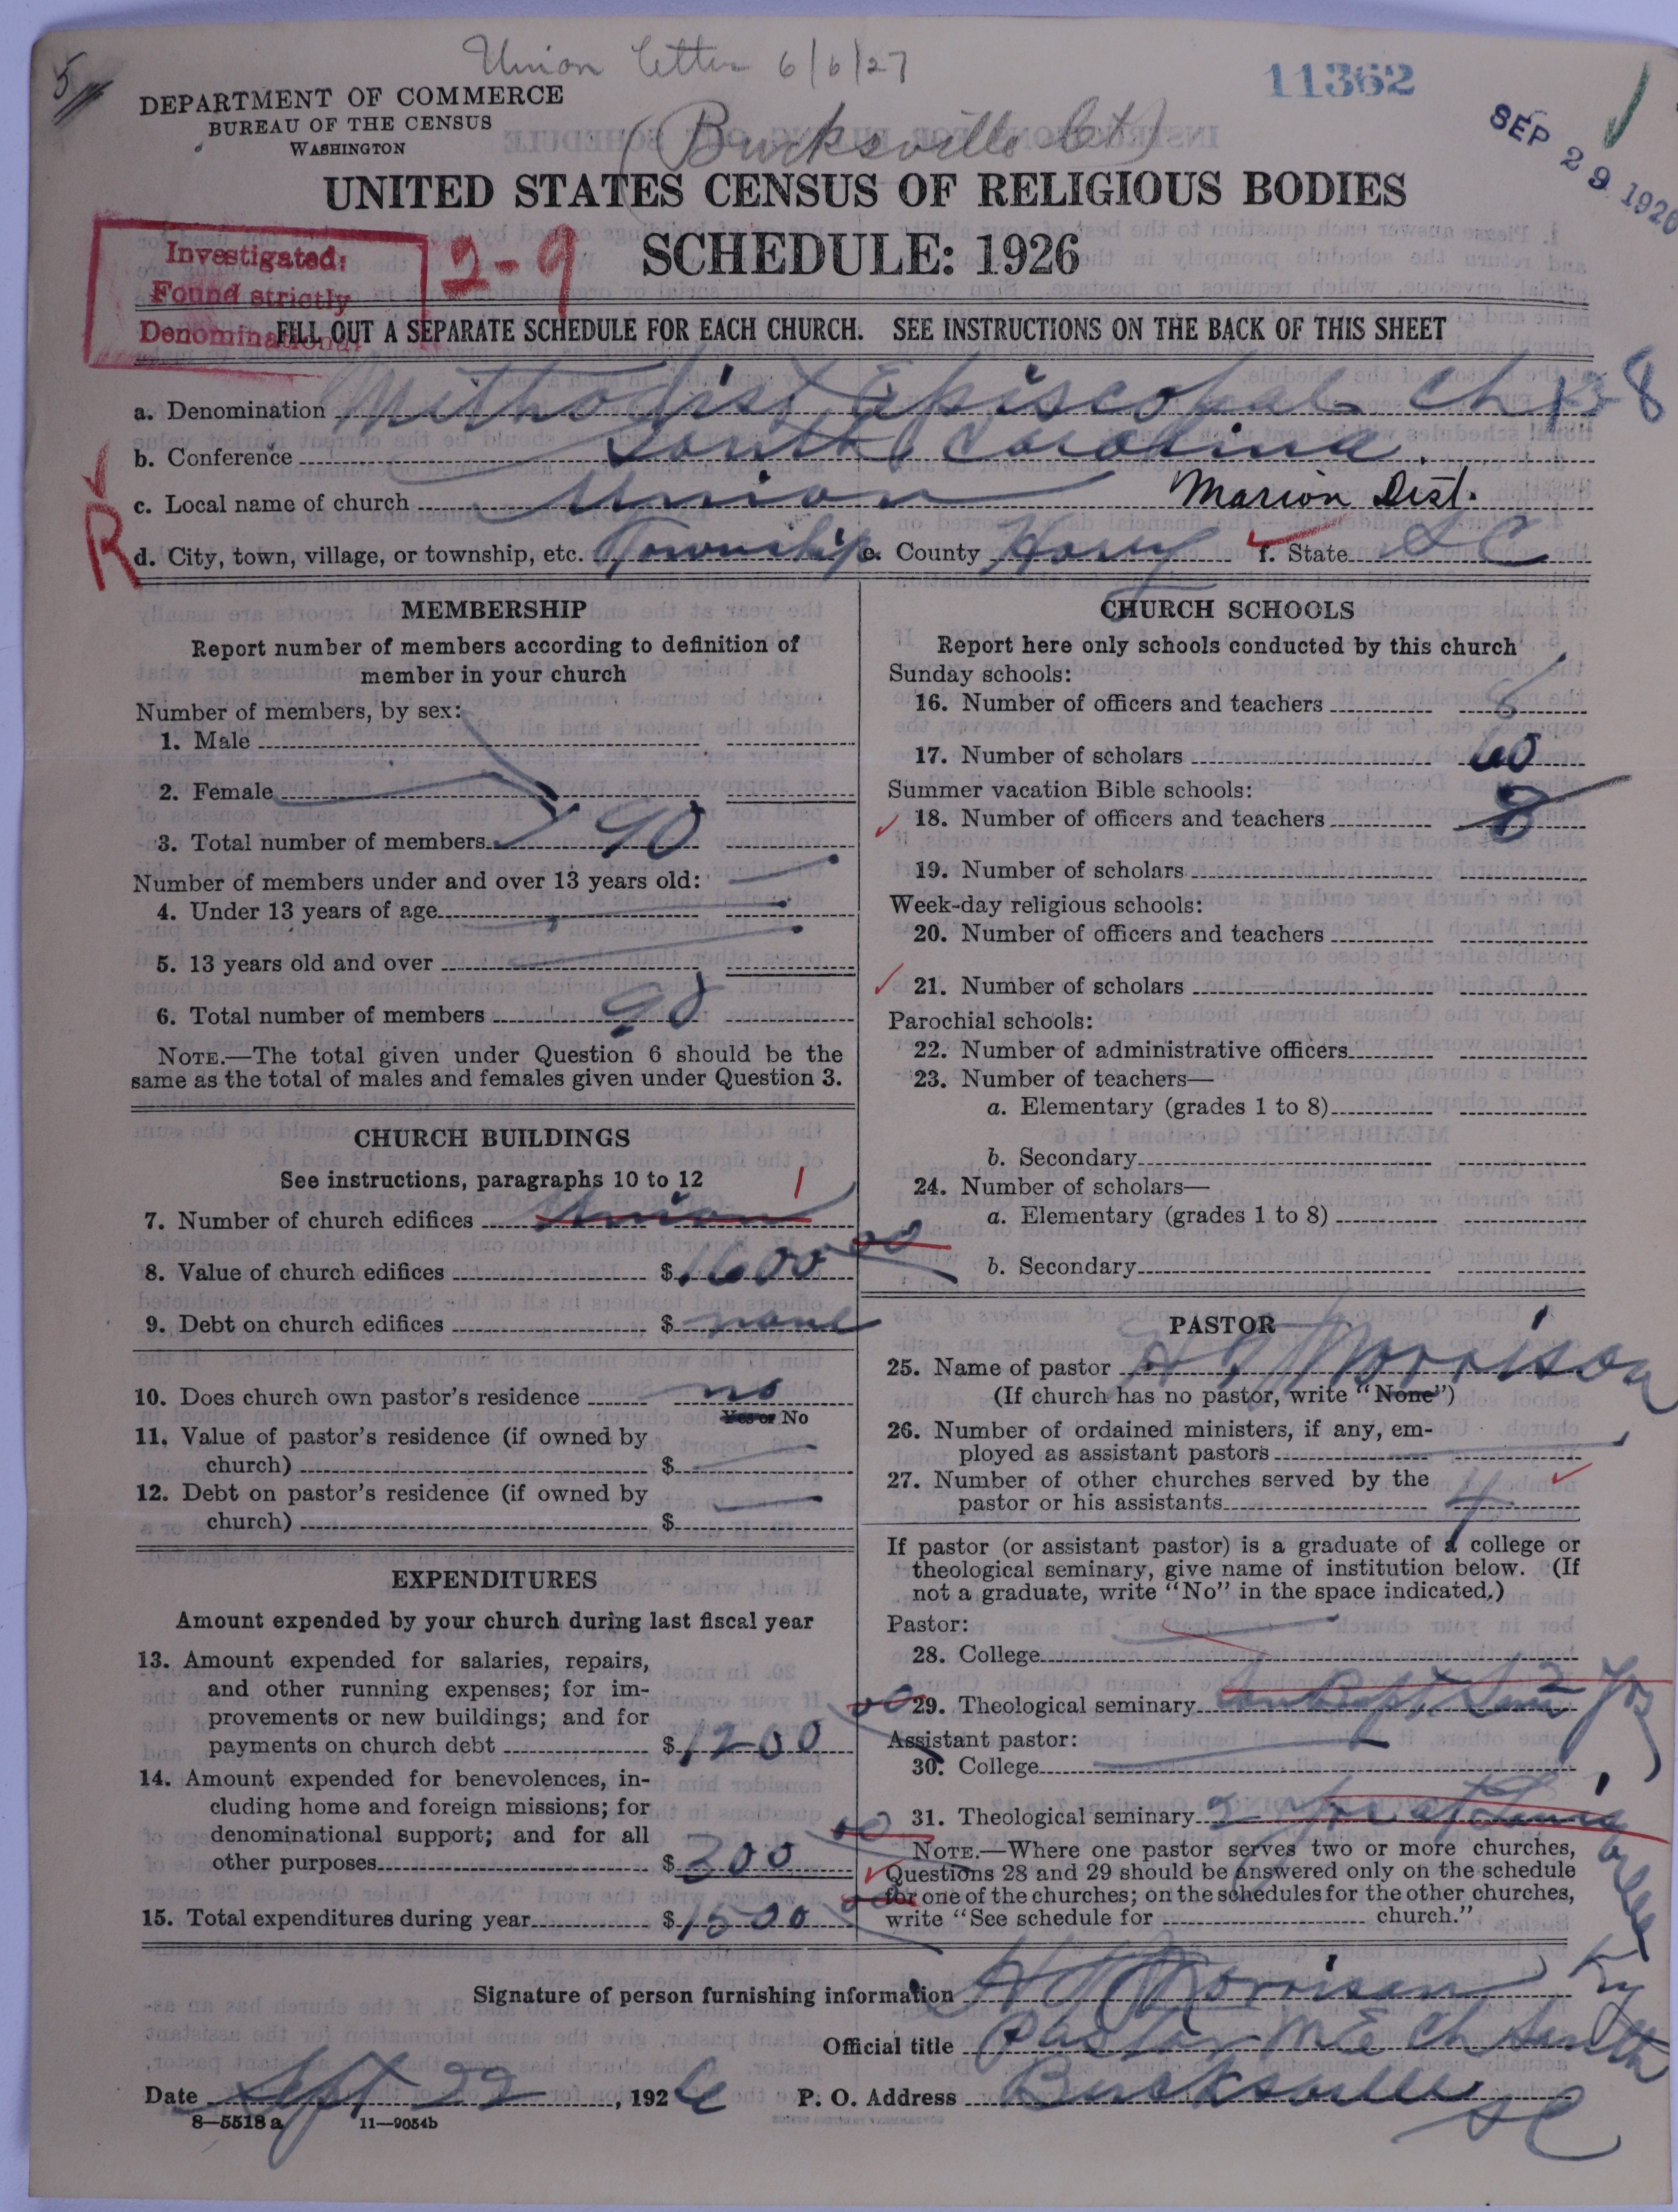 Union letter 6/6/27
11362
DEPARTMENT OF COMMERCE
BUREAU OF THE CENSUS
WASHINGTON
(Bucksville Ct)
SEP 29 1926
UNITED STATES CENSUS OF RELIGIOUS BODIES
SCHEDULE: 1926
Investigated:
Found strictly
Denominational
2-9
FILL OUT A SEPARATE SCHEDULE FOR EACH CHURCH. SEE INSTRUCTIONS ON THE BACK OF THIS SHEET
a. Denomination Methodist Episcopal Ch
b. Conference South Carolina
c. Local name of church Union Marion Dist.
R
d. City, town, village, or township, etc. Township e. County Horry f. State S C
MEMBERSHIP
Report number of members according to definition of
member in your church
Number of members, by sex:
1. Male
2. Female
3. Total number of members 90
Number of members under and over 13 years old:
4. Under 13 years of age
5. 13 years old and over
6. Total number of members 90
NOTE.—The total given under Question 6 should be the
same as the total of males and females given under Question 3.
CHURCH BUILDINGS
See instructions, paragraphs 10 to 12
7. Number of church edifices Union 1
8. Value of church edifices $ 1600 00
9. Debt on church edifices $ none
10. Does church own pastor's residence no
Yes or No
11. Value of pastor's residence (if owned by
church) $
12. Debt on pastor's residence (if owned by
church) $
EXPENDITURES
Amount expended by your church during last fiscal year
13. Amount expended for salaries, repairs,
and other running expenses; for im-
provements or new buildings; and for
payments on church debt $ 1200 00
14. Amount expended for benevolences, in-
cluding home and foreign missions; for
denominational support; and for all
other purposes $ 300 00
15. Total expenditures during year $ 1500 00
CHURCH SCHOOLS
Report here only schools conducted by this church
Sunday schools:
16. Number of officers and teachers 6
17. Number of scholars 60
Summer vacation Bible schools:
18. Number of officers and teachers 8
19. Number of scholars
Week-day religious schools:
20. Number of officers and teachers
21. Number of scholars
Parochial schools:
22. Number of administrative officers
23. Number of teachers—
a. Elementary (grades 1 to 8)
b. Secondary
24. Number of scholars—
a. Elementary (grades 1 to 8)
b. Secondary
PASTOR
25. Name of pastor Morrison
(If church has no pastor, write "None")
26. Number of ordained ministers, if any, em-
ployed as assistant pastors
27. Number of other churches served by the
pastor or his assistants 4
If pastor (or assistant pastor) is a graduate of a college or
theological seminary, give name of institution below. (If
not a graduate, write "No" in the space indicated.)
Pastor:
28. College
29. Theological seminary
Assistant pastor:
30. College
31. Theological seminary
NOTE.—Where one pastor serves two or more churches,
Questions 28 and 29 should be answered only on the schedule
for one of the churches; on the schedules for the other churches,
write "See schedule for church."
Signature of person furnishing information Morrison
Official title Pastor M E Ch South
Date Sept 22, 1926 P. O. Address Bucksville
S C
8—5518 a 11—9054b